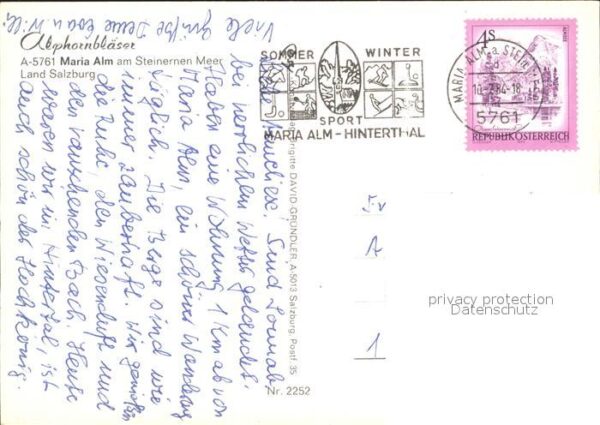 Alphornbläser
A-5761 Maria Alm am Steinernen Meer
Land Salzburg
SOMMER WINTER
SPORT
MARIA ALM - HINTERTHAL
MARIA ALM a. STEIN
5761
4 S
ALMSEE
REPUBLIK ÖSTERREICH
Brigitte DAVID GRÜNDLER, A 5013 Salzburg, Postf. 35
Nr. 2252
Sind Sonnab.
bei herrlichem Wetter gelandet.
Haben eine Wohnung 1 km ab von
Maria Alm, ein schöner Wanderweg
täglich. Die Berge sind wie
immer zauberhaft. Wir genießen
die Ruhe, den Wiesenduft und
den rauschenden Bach. Heute
waren wir in Hintertal, ist
auch schön der Hochkönig.
Viele Grüße Deine Eva u. Willi
A
1
privacy protection
Datenschutz